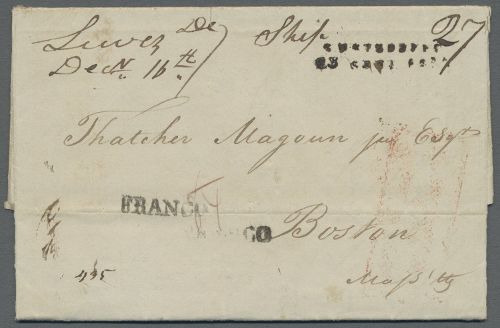 Lewes De
Decr. 16th
Ship 27
Thatcher Magoun jur Esqr
FRANCO
Boston
Mass'tts
495